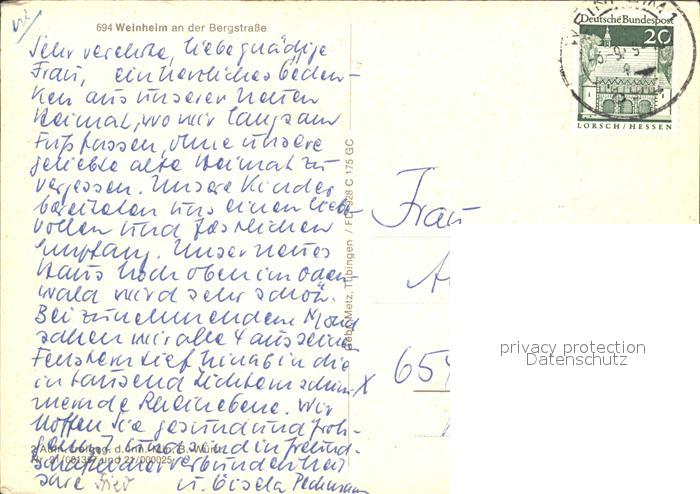 694 Weinheim an der Bergstraße
Deutsche Bundespost
20
LORSCH/HESSEN
Sehr verehrte, liebe gnädige
Frau, ein herzliches Geden-
ken aus unserer neuen
Heimat, wo wir langsam
Fuß fassen, ohne unsere
geliebte alte Heimat zu
vergessen. Unsere Kinder
bereiteten uns einen liebe-
vollen und festlichen
Empfang. Unser neues
Haus hoch oben im Oden
wald wird sehr schön.
Bei zunehmendem Mond
sahen wir alle 4 aus seinen
Fenstern tief hinab in die
in tausend Lichtern schim-
mernde Rheinebene. Wir
hoffen Sie gesund und froh-
und sind in freund-
schaftlicher Verbundenheit
Ihre u. Gisela
Gebr. Metz, Tübingen / FC 928 C 175 GC
Frau
65
privacy protection
Datenschutz